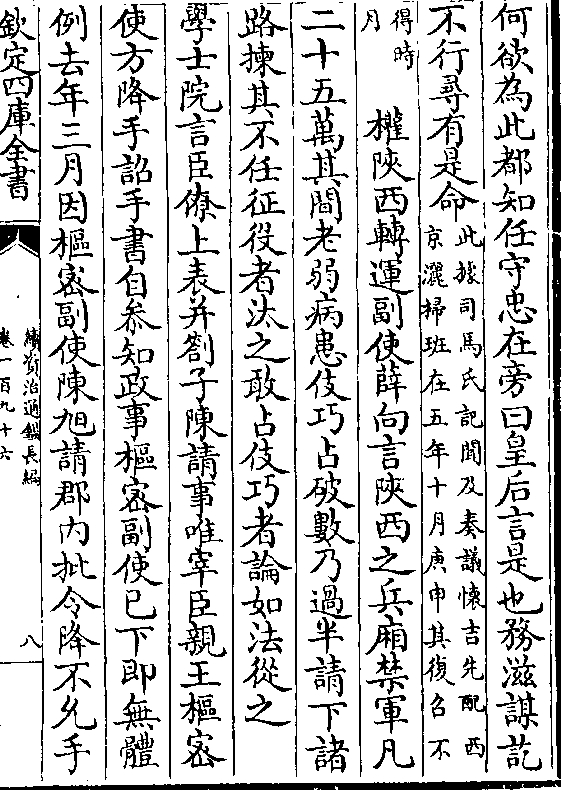 何欲為此都知任守忠在旁曰皇后言是也務滋謀訖
不行尋有是命此據司馬氏記聞及奏議懷吉先配西
京灑掃班在五年十月庚申其復召不
得時
月
權陝西轉運副使薛向言陝西之兵廂禁軍凡
二十五萬其間老弱病患伎巧占破數乃過半請下諸
路揀其不任征役者汰之敢占伎巧者論如法從之
學士院言臣僚上表并劄子陳請事唯宰臣親王樞密
使方降手詔手書自參知政事樞密副使已下即無體
例去年三月因樞密副使陳旭請郡內批令降不允手
欽定四庫全書
續資治通鑑長編
卷一百九十六
八